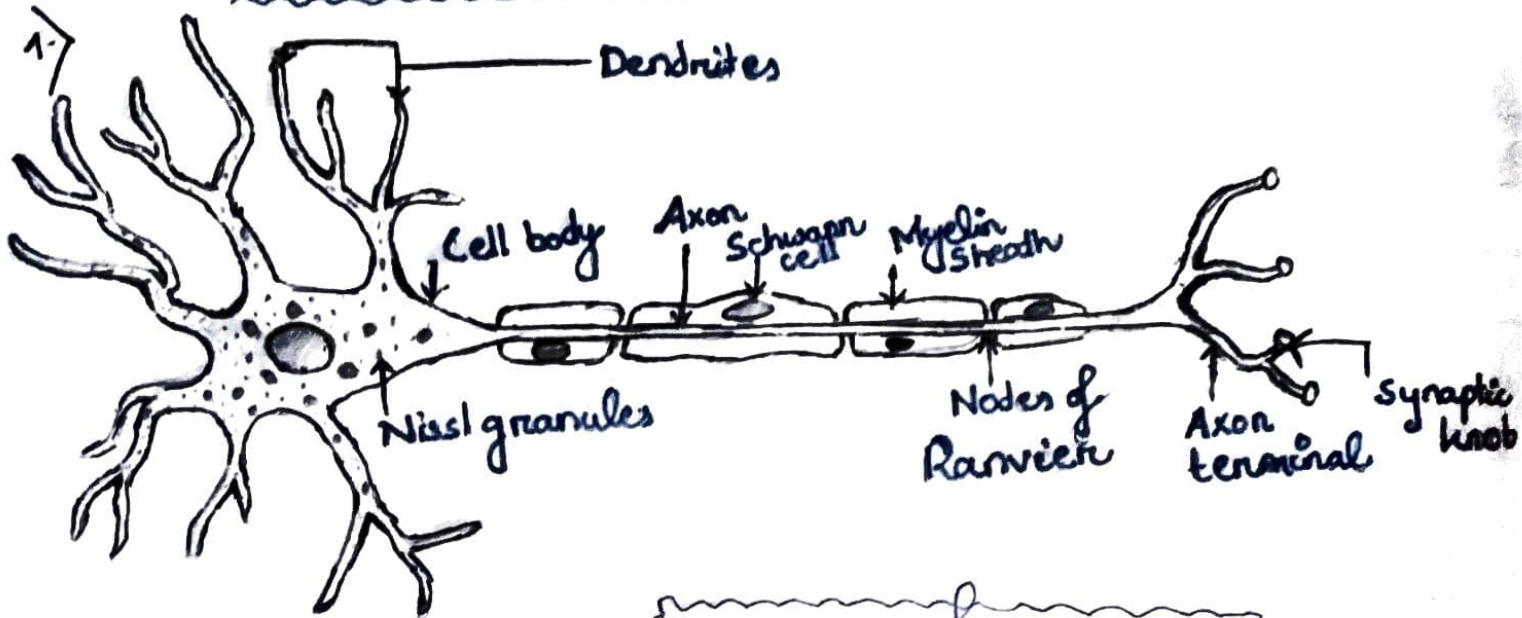 1.
Dendrites
Cell body
Axon
Schwann
cell
Myelin
Sheath
Nissl granules
Nodes of
Ranvier
Axon
terminal
Synaptic
knob